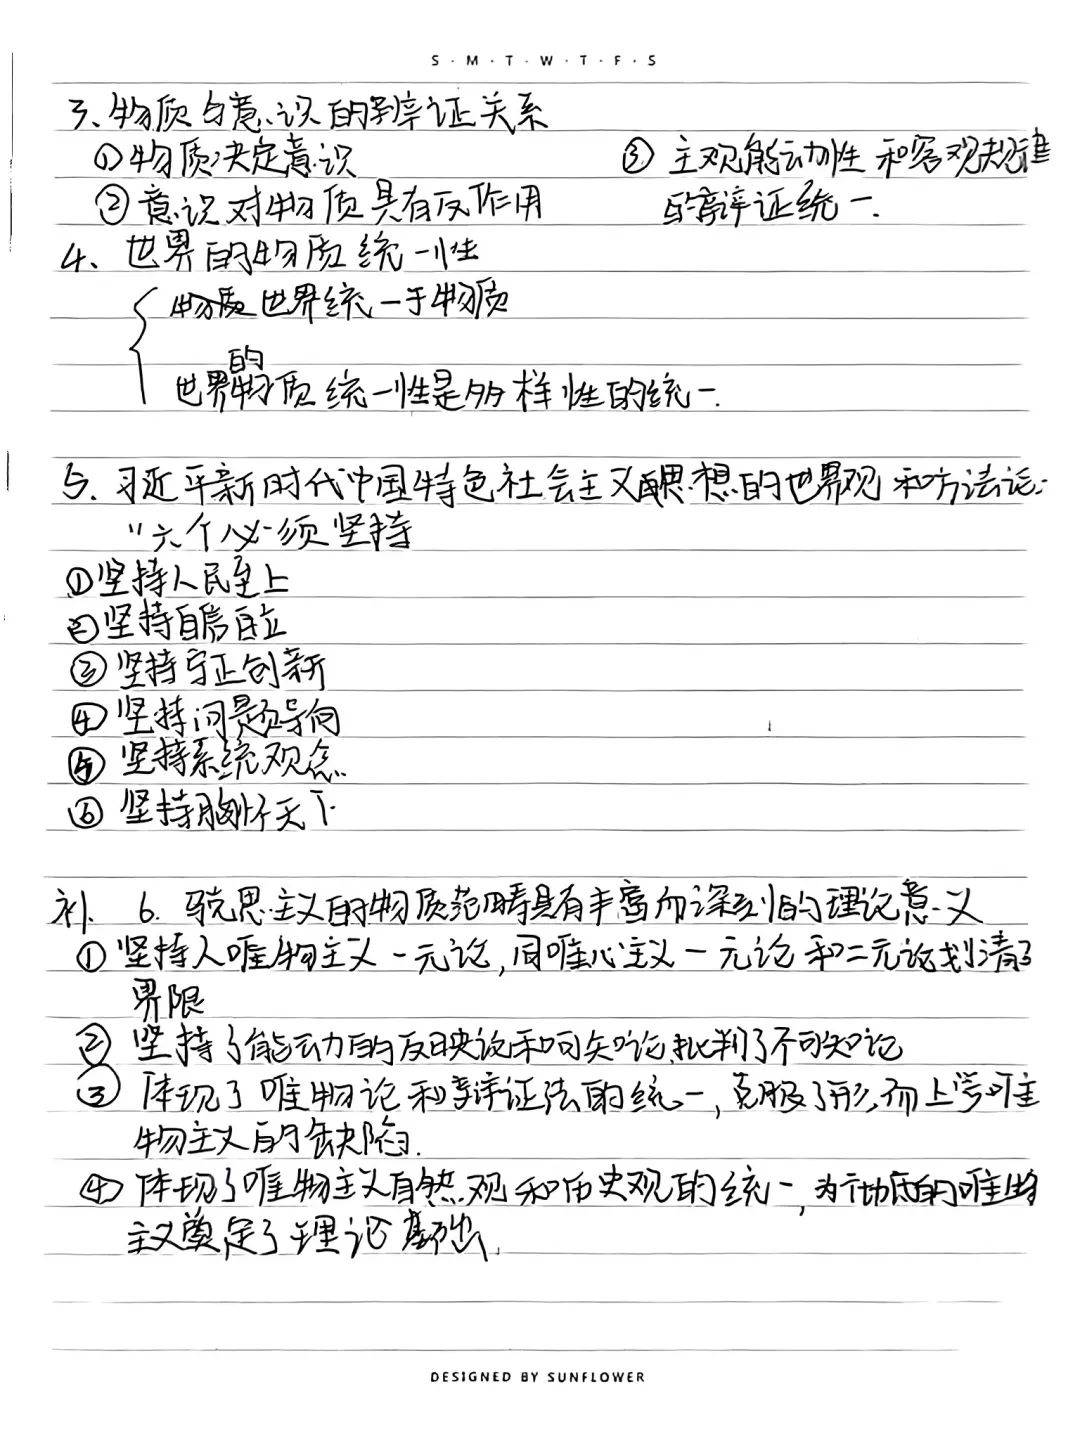 S · M · T · W · T · F · S
3、物质与意识的辩证关系
①物质决定意识
③ 主观能动性和客观规律
②意识对物质具有反作用
的辩证统一.
4、世界的物质统一性
物质世界统一于物质
的
世界物质统一性是多样性的统一.
5、习近平新时代中国特色社会主义思想的世界观和方法论:
"六个必须坚持
①坚持人民至上
②坚持自信自立
③坚持守正创新
④坚持问题导向
⑤坚持系统观念.
⑥坚持胸怀天下.
补. 6. 马克思主义的物质范畴具有丰富而深刻的理论意义
①坚持人唯物主义一元论,同唯心主义一元论和二元论划清了
界限
②坚持了能动的反映论和可知论,批判了不可知论
③体现了唯物论和辩证法的统一,克服了形而上学唯
物主义的缺陷.
④体现了唯物主义自然观和历史观的统一,为彻底的唯物
主义奠定了理论基础.
DESIGNED BY SUNFLOWER